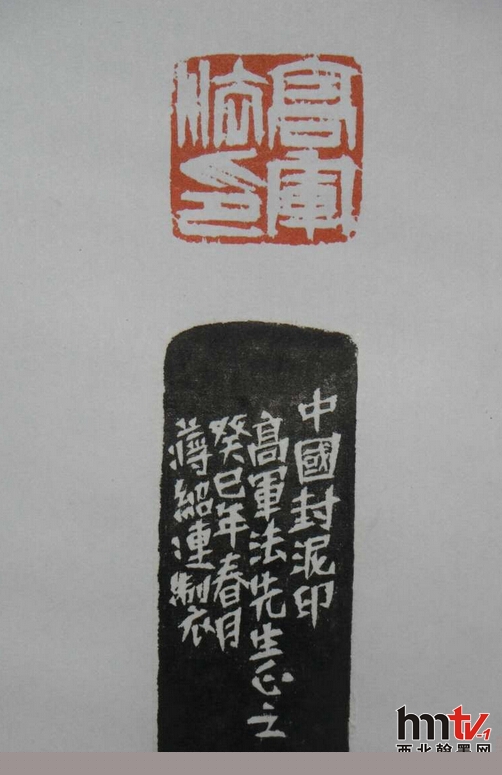 髙軍
法印
中國封泥印
髙軍法先生正之
癸巳年春月
蔣紹連製
hmtv-1
西北翰墨网